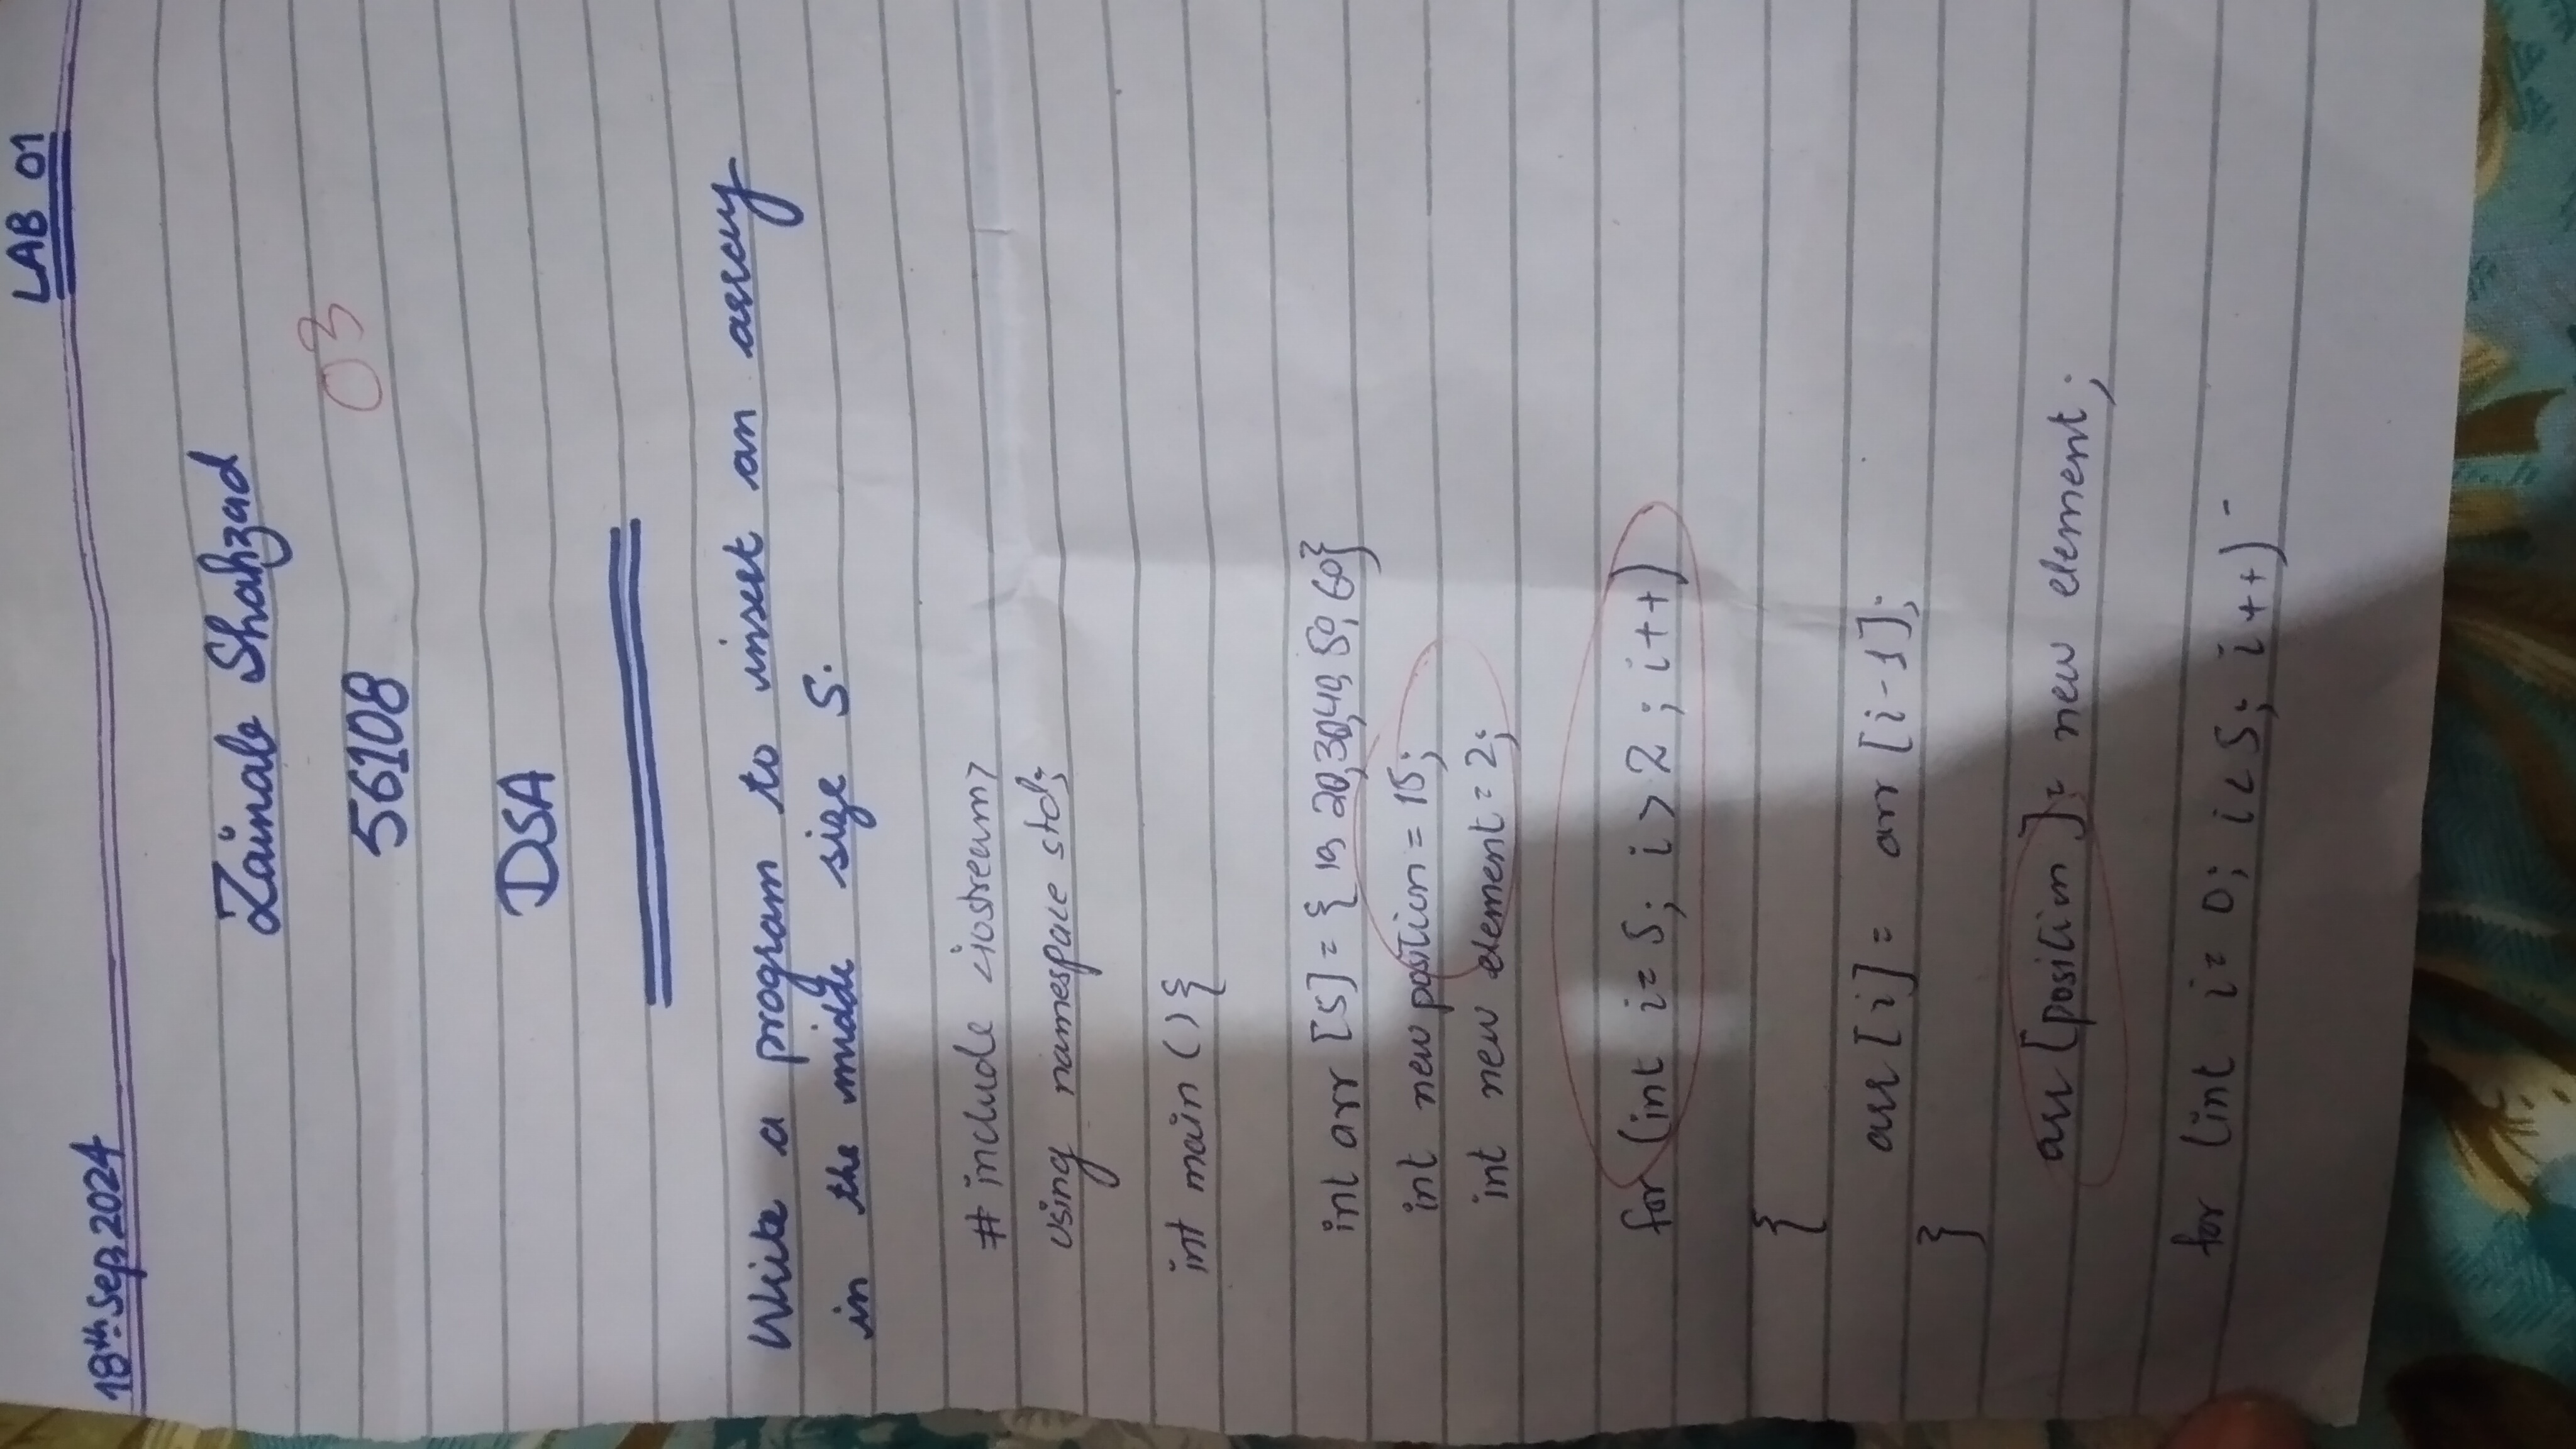 LAB 01
18th Sep, 2024
Zainab Shahzad
56108
03
DSA
Write a program to insert an array
in the midde size 5.
# include <iostream>
using namespace std;
int main () {
int arr [5] = { 10, 20, 30, 40, 50, 60}
int new position = 15;
int new element = 2;
for (int i = 5; i > 2 ; i++)
{
arr [i] = arr [i-1];
}
arr [position] = new element;
for (int i = 0; i < 5; i++)